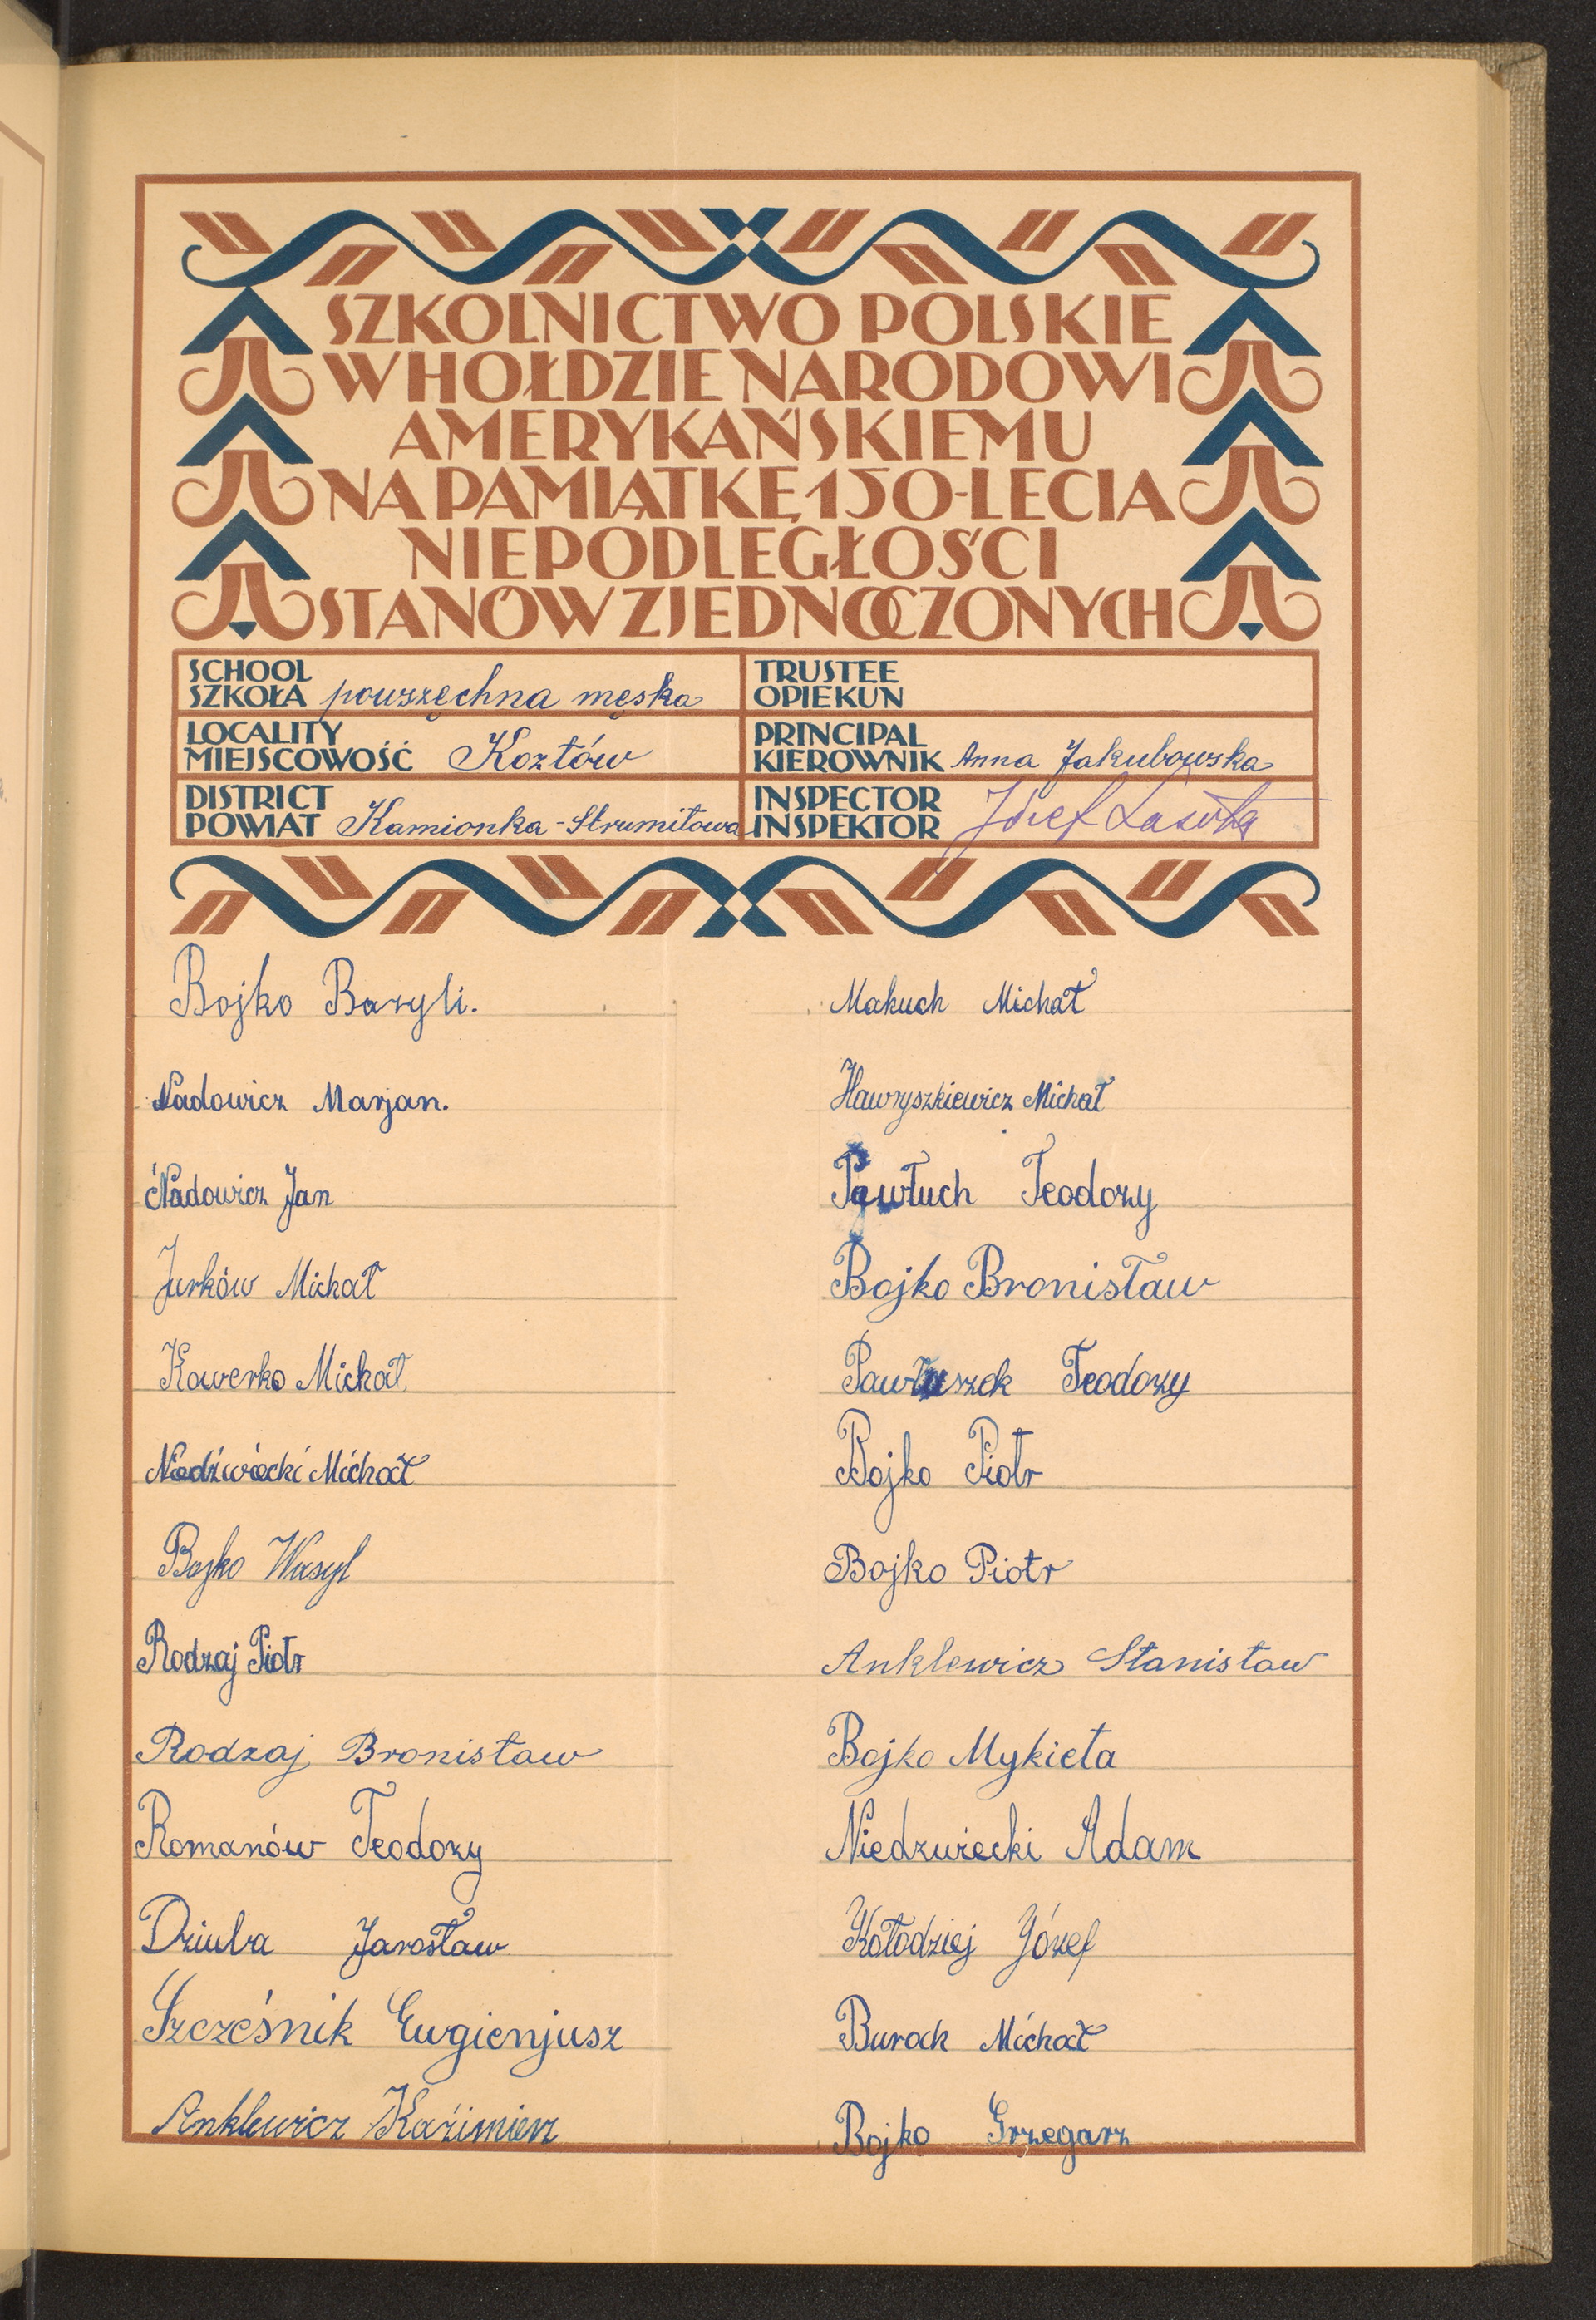 SZKOLNICTWO POLSKIE
W HOŁDZIE NARODOWI
AMERYKAŃSKIEMU
NA PAMIĄTKĘ 150-LECIA
NIEPODLEGŁOŚCI
STANÓW ZJEDNOCZONYCH
SCHOOL
SZKOŁA powszęchna męska
TRUSTEE
OPIEKUN
LOCALITY
MIEJSCOWOŚĆ Kozłów
PRINCIPAL
KIEROWNIK Anna Jakubowska
DISTRICT
POWIAT Kamionka-Strumiłowa
INSPECTOR
INSPEKTOR Józef
Bojko Bazyli.
Nadowicz Marjan.
Nadowicz Jan
Jurków Michał
Kawerko Michał
Niedźwiecki Michał
Bojko Wasyl
Rodzaj Piotr
Rodzaj Bronisław
Romanów Teodozy
Dziuba Jarosław
Szcześnik Eugienjusz
Anklewicz Kaźimierz
Makuch Michał
Hawryszkiewicz Michał
Pawłuch Teodozy
Bojko Bronisław
Pawłuszek Teodozy
Bojko Piotr
Bojko Piotr
Anklewicz Stanisław
Bojko Mykieta
Niedzwiecki Adam
Kołodziej Józef
Burack Michał
Bojko Grzegarz